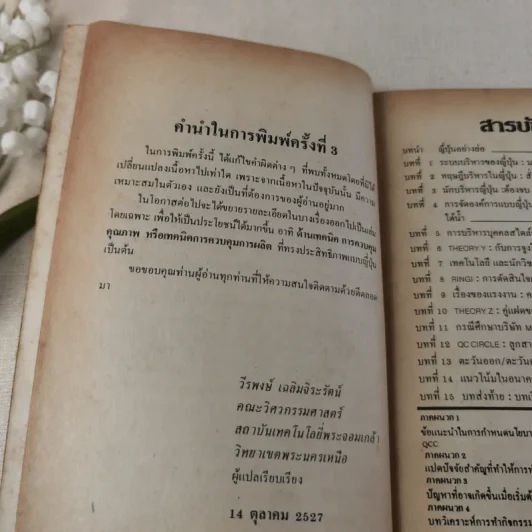 คำนำในการพิมพ์ครั้งที่ 3
ในการพิมพ์ครั้งนี้ ได้แก้ไขคำผิดต่าง ๆ ที่พบทั้งหมดโดยที่มิได้
เปลี่ยนแปลงเนื้อหาไปเท่าใด เพราะจากเนื้อหาในปัจจุบันนั้น มีความ
เหมาะสมในตัวเอง และยังเป็นที่ต้องการของผู้อ่านอยู่มาก
ในโอกาสต่อไปจะได้ขยายรายละเอียดในบางเรื่องออกไปเป็นเล่ม
โดยเฉพาะ เพื่อให้เป็นประโยชน์ได้มากขึ้น อาทิ ด้านเทคนิค การควบคุม
คุณภาพ หรือเทคนิคการควบคุมการผลิต ที่ทรงประสิทธิภาพแบบญี่ปุ่น
เป็นต้น
ขอขอบคุณท่านผู้อ่านทุกท่านที่ให้ความสนใจติดตามด้วยดีตลอด
มา
วีรพงษ์ เฉลิมจิระรัตน์
คณะวิศวกรรมศาสตร์
สถาบันเทคโนโลยีพระจอมเกล้า
วิทยาเขตพระนครเหนือ
ผู้แปลเรียบเรียง
14 ตุลาคม 2527
สารบั
บทนำ ญี่ปุ่นอย่างย่อ
บทที่ 1 ระบบบริหารของญี่ปุ่น :
บทที่ 2 ทฤษฎีบริหารในญี่ปุ่น :
บทที่ 3 นักบริหารญี่ปุ่น ต้อง
บทที่ 4 การจัดองค์การแบบญี่ปุ่น
ได้น้ำ
บทที่ 5 การบริหารบุคคลสไตล์
บทที่ 6 THEORY.Y : กับการจูง
บทที่ 7 เทคโนโลยี และนักวิช
บทที่ 8 RINGI : การตัดสินใจ
บทที่ 9 เรื่องของแรงงาน :
บทที่ 10 THEORY.Z : คู่แฝด
บทที่ 11 กรณีศึกษาบริษัท M
บทที่ 12 QC CIRCLE : ลูกสา
บทที่ 13 ตะวันออก/ตะวัน
บทที่ 14 แนวโน้มในอนาค
บทที่ 15 บทส่งท้าย : บท
ภาคผนวก 1
ข้อแนะนำในการกำหนดนโยบา
QCC
ภาคผนวก 2
แปดปัจจัยสำคัญที่ทำให้การท
ภาคผนวก 3
ปัญหาที่อาจเกิดขึ้นเมื่อเริ่มต้
ภาคผนวก 4
บทวิเคราะห์การทำกิจกรรม